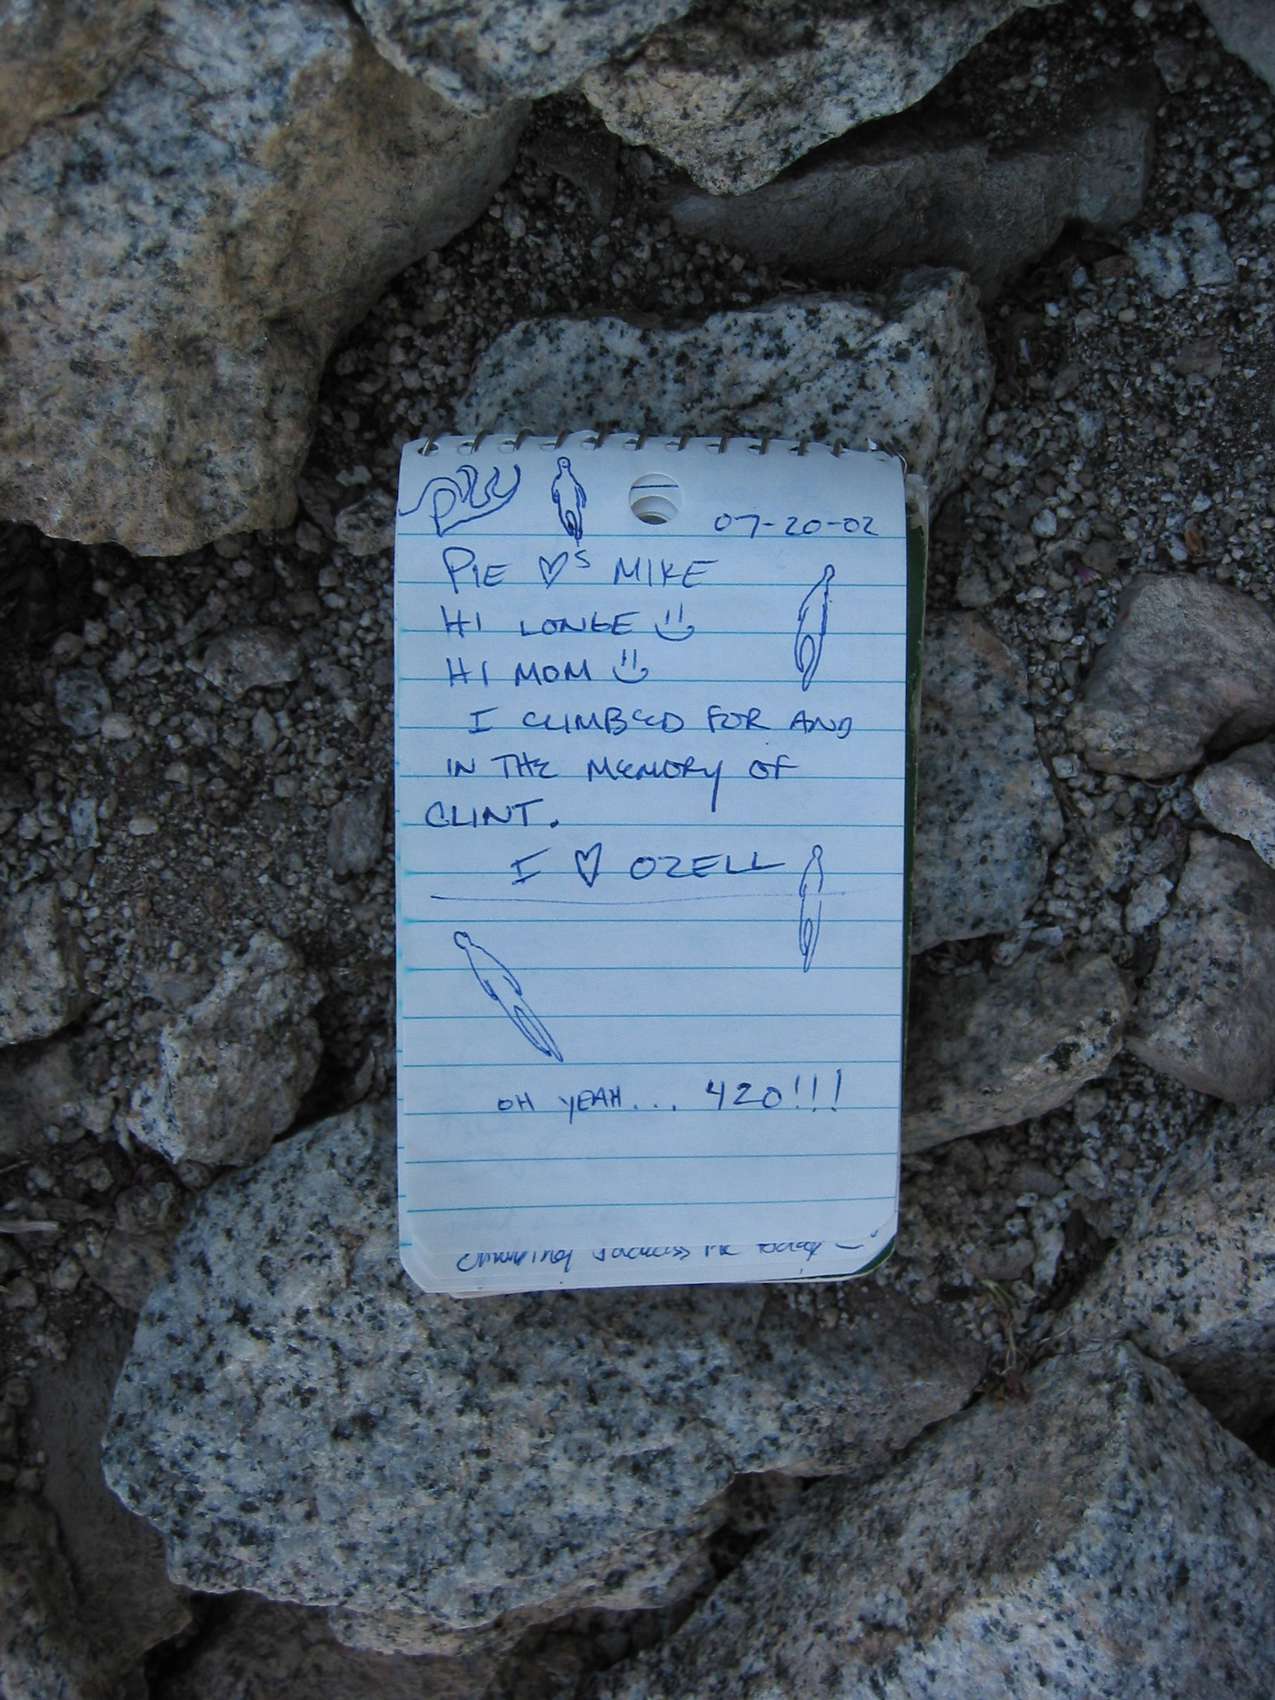 07-20-02
PIE ♥S MIKE
HI LONGE
HI MOM
I CLIMBED FOR AND
IN THE MEMORY OF
CLINT.
I ♥ OZELL
OH YEAH... 420!!!